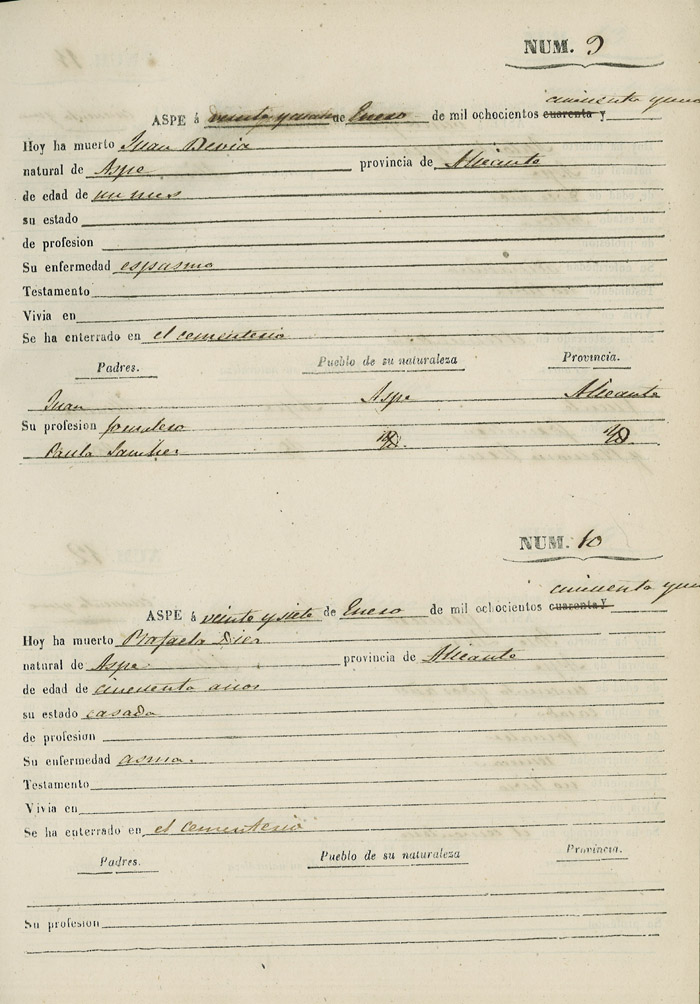 NUM. 9
cincuenta y uno
ASPE á veinte y cuatro de Enero de mil ochocientos cuarenta y
Hoy ha muerto Juan Devia
natural de Aspe provincia de Alicante
de edad de un mes
su estado
de profesion
Su enfermedad espasmo
Testamento
Vivia en
Se ha enterrado en el cementerio
Padres. Pueblo de su naturaleza Provincia.
Juan Aspe Alicante
Su profesion jornalero
Paula Sanchez
NUM. 10
cincuenta y uno
ASPE á veinte y siete de Enero de mil ochocientos cuarenta y
Hoy ha muerto Rafaela
natural de Aspe provincia de Alicante
de edad de cincuenta años
su estado casada
de profesion
Su enfermedad asma.
Testamento
Vivia en
Se ha enterrado en el cementerio
Padres. Pueblo de su naturaleza Provincia.
Su profesion